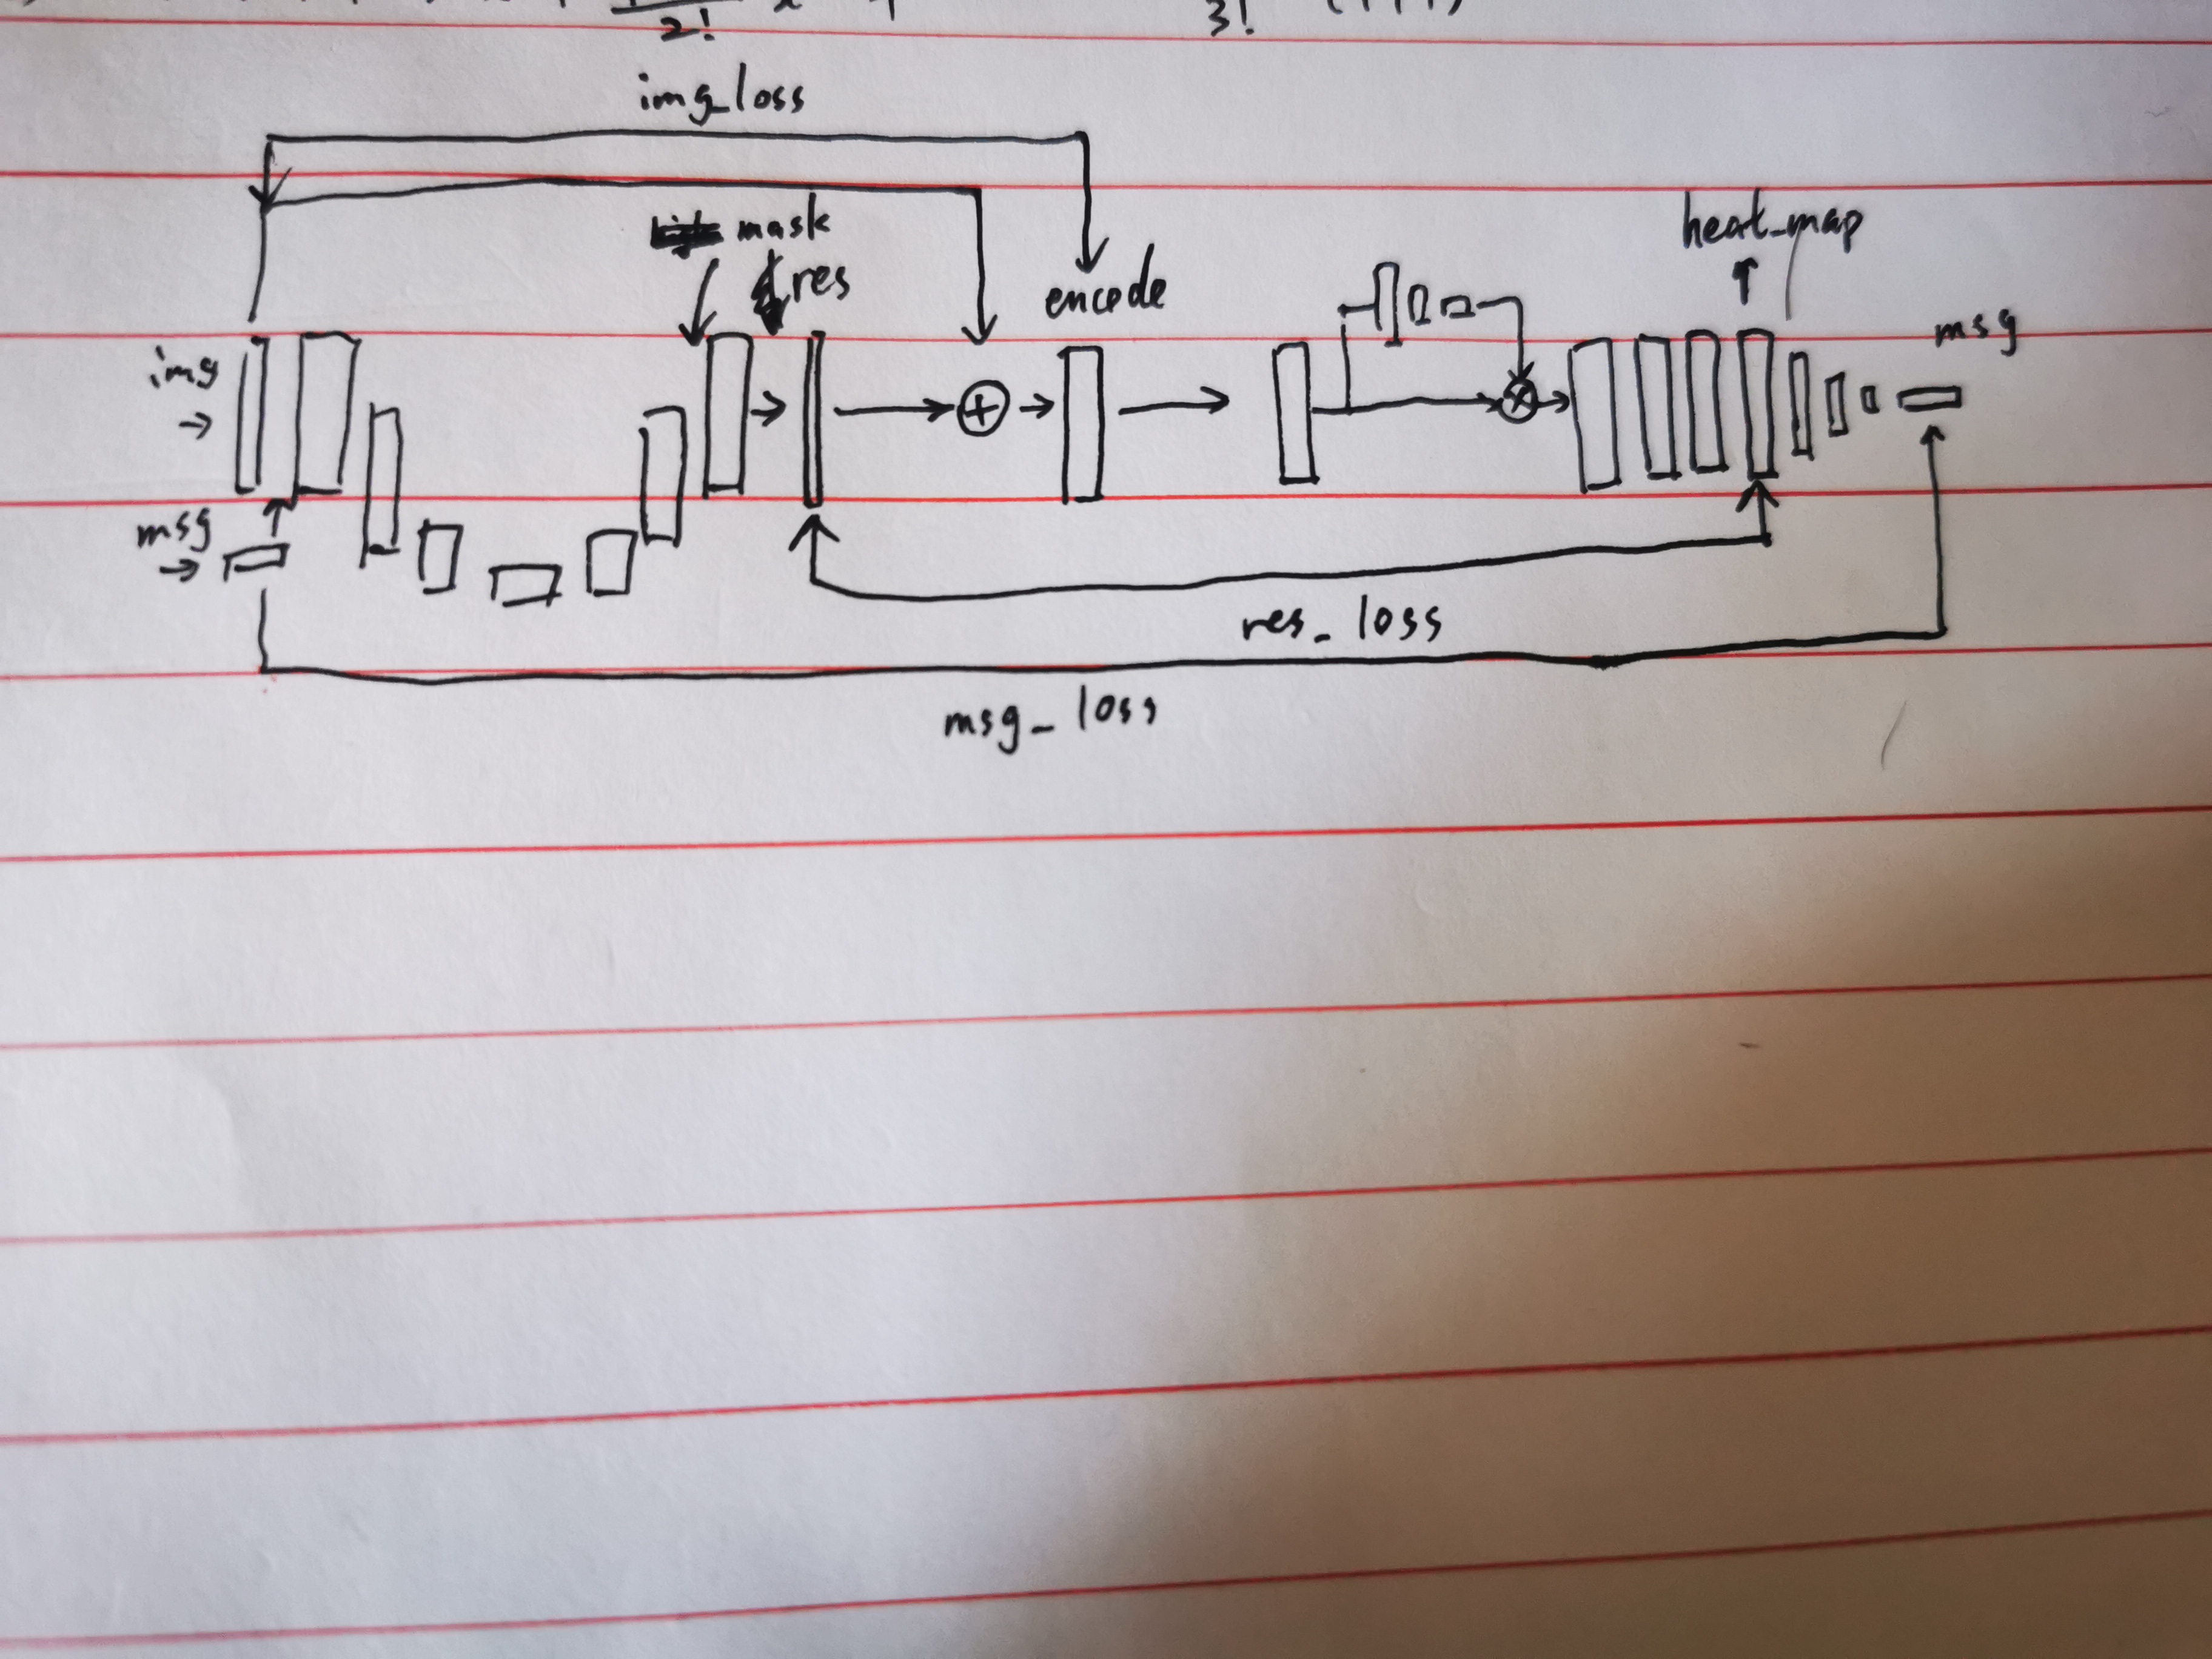 2!
3!
img_loss
mask
res
encode
heat_map
msg
img
msg
res_loss
msg_loss